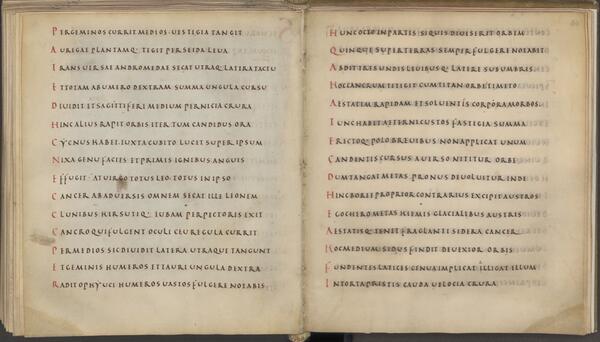 PERGEMINOS CURRIT MEDIOS · UESTIGIA TANGIT
AURIGAE PLANTAMQ; TEGIT PERSEIDA LEUA
TRANSUERSAE ANDROMEDAE SECAT UTRAQ; LATERA TACTU
ET TOTAM ABUMERO DEXTRAM SUMMA UNGULA CURSU
DIUIDIT ET SAGITTIFERI MEDIUM PERNICIA CRURA
HINC ALIUS RAPIT ORBIS ITERTUM CANDIDUS ORA
CYCNUS HABET IUXTA CUBITO LUCIT SUPER IPSUM
NIXA GENU FACIES ET PRIMIS IGNIBUS ANGUIS
EFFUGIT ATUIRGO TOTUS LEO TOTUS INIPSO
CANCER ABADUERSIS OMNEM SECAT ILLE LEONEM
CLUNIBUS HIRSUTIQ; IUBAM PERPICTORIS EXIT
CANCRO QUI FULGENT OCULI CEU REGULA CURRIT
PERMEDIOS SIC DIUIDIT LATERA UTRAQUE TANGUNT
ET GEMINIS HUMEROS ET TAURI UNGULA DEXTRA
RADIT OPHYUCI HUMEROS UASTOS FULGERE NOTABIS
HUNC OCTO INPARTIS SIQUIS DIUISERIT ORBIM
QUINQUE SUPERTERRAS SEMPER FULGERE NOTABIT
ABDIT TRIS UNDIS LEUIBUS Q; LATERE SUBUMBRIS
HOC CANCRUM TETIGIT CUM TITAN ORBE TIMETO
AESTATEM RAPIDAM ET SOLUENTIS CORPORA MORBOS
IUNCHABET AETERNI CUSTOS FASTIGIA SUMMA
ERICTOQ; POLO BREUIBUS NON APPLICAT UNUM
CANDENTIS CURSUS AUERSO NITITUR ORBE
DUM TANGAT METAS PRONUS DEUOLUITUR INDE
HINC BORIE PROPRIOR CONTRARIUS EXCIPIT AUSTROS
EGOCHERO METAS HIEMIS GLACIALIBUS AUSTRIS
AESTATIS Q; TENET FRAGLANTI SIDERA CANCER
HOC MEDIUM SIDUS FINDIT DEUEXIOR ORBIS
FUNDENTES LATICES GENUA IMPLICAT ILLIGAT ILLUM
INTORTA PRISTIS CAUDA UELOCIA CRURA